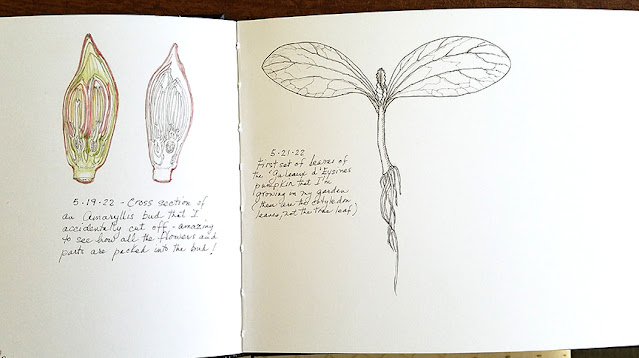 5·19·22 - Cross section of
an Amaryllis bud that I
accidentally cut off - amazing
to see how all the flowers and
parts are packed into the bud!
5·21·22
First set of leaves of
the 'Galeaux d'Eysines
pumpkin that I'm
growing in my garden
(these are the cotyledon
leaves, not the true leaf)